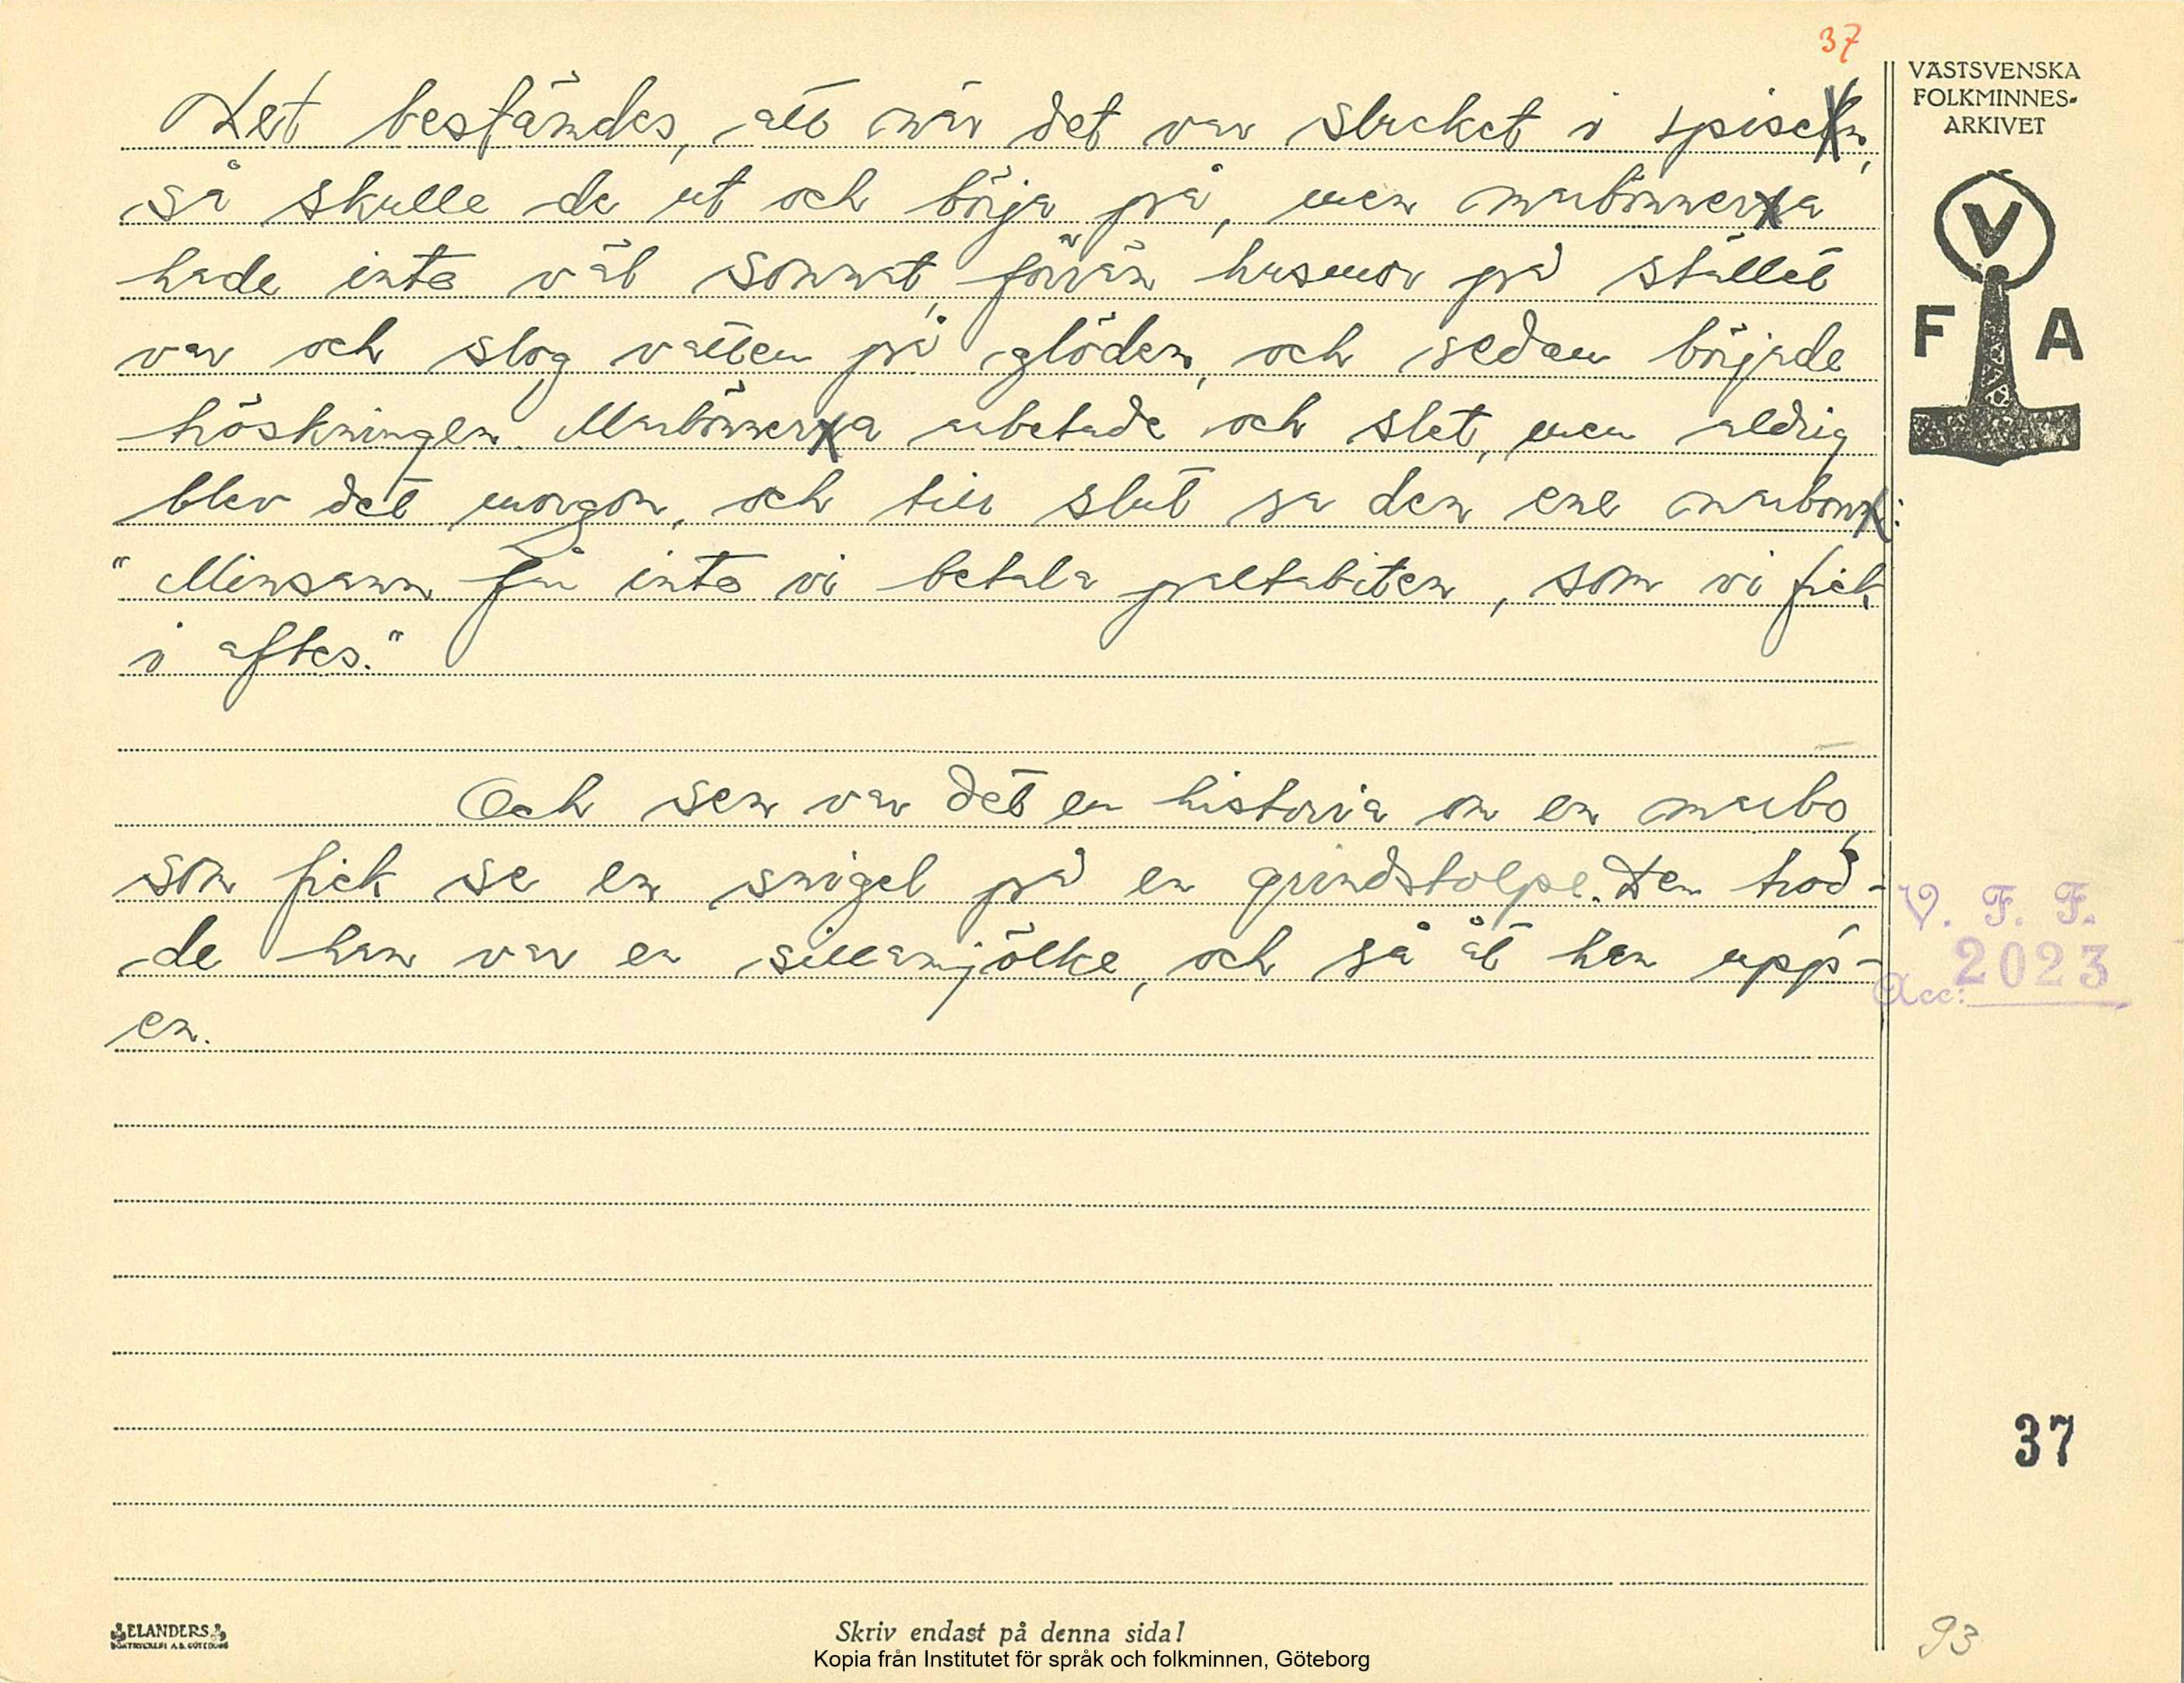 37
VÄSTSVENSKA
FOLKMINNES-
ARKIVET
V
F A
Det bestämdes, att när det var släcket i spisen,
så skulle de ut och börja på, men marbönnera
hade inte väl somnat, förrän husmor på stället
var och slog vatten på glöden, och sedan började
tröskningen. Marbönnera arbetade och slet, men aldrig
blev det morgon, och till slut sa den ene marbon:
"Minsann får inte vi betala paltabiten, som vi fick
i aftes."
Och sen var det en historia om en marbo,
som fick se en snigel på en grindstolpe. Den trod-
de han var en sillamjölke, och så åt han upp-
en.
V. F. F.
Acc: 2023
37
93
ELANDERS
BOKTRYCKERI A.B. GÖTEBORG
Skriv endast på denna sida!
Kopia från Institutet för språk och folkminnen, Göteborg